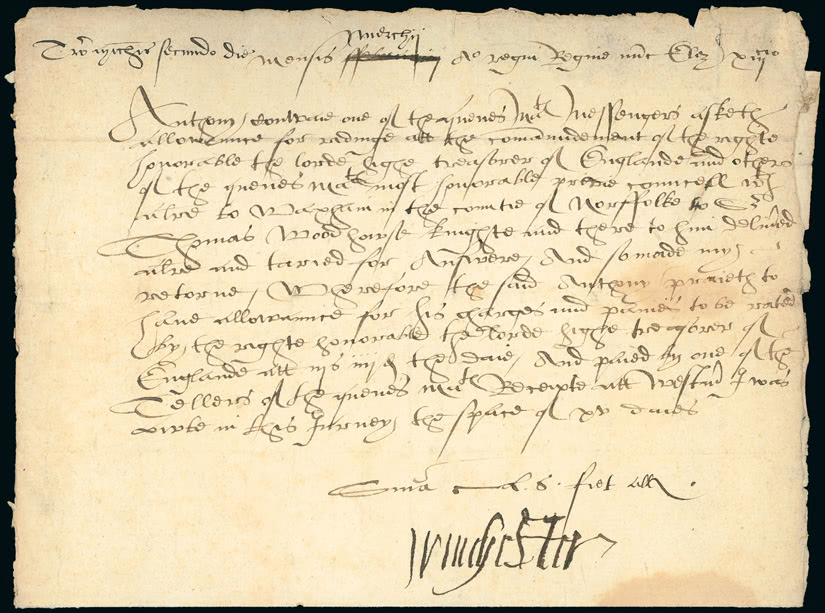 secundo die mensis merchij Ao regni Regine nunc Eliz
Anthony one of the quenes Ma^te messengers asketh
allowaunce for ridinge att the comaundement of the righte
honorable the lorde highe treasurer of Englande and others
of the quenes Ma^te most honorable previe councell w^t
a lre to Waxham in the countie of Norffolke to S^r
Thomas Woodhowse knighte and there to him delivered
a lre and taried for Answere, And so made my
retorne, Wherefore the said Anthony praieth to
have allowaunce for his charges and paines to be rated
by the righte honorable the lorde highe treasorer of
Englande att iijs iiijd the daie, And paied by one of the
Tellers of the quenes Ma^te Receipte att Westm I was
owte in this Jurney the space of xv daies
S. fiet all
Winchester